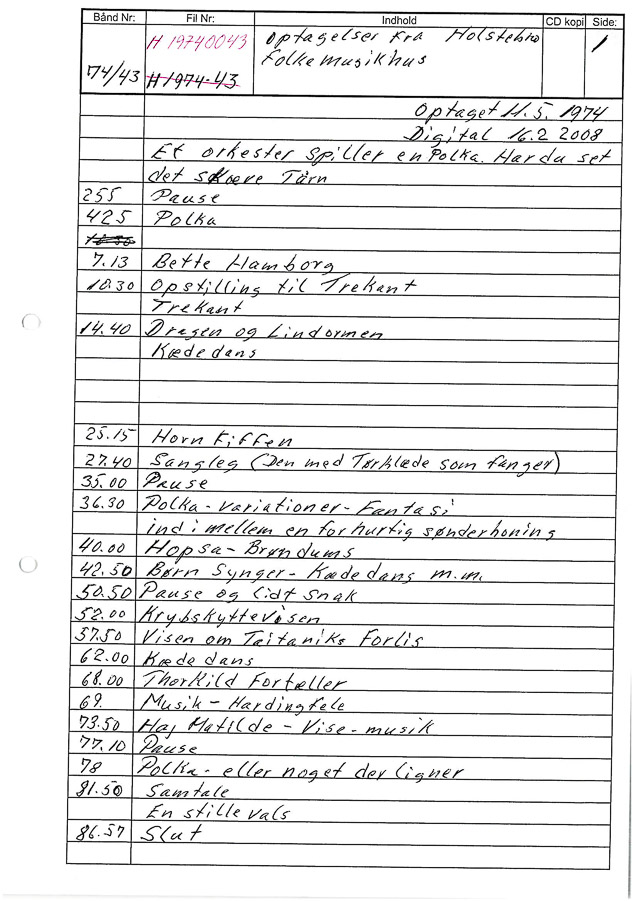 Bånd Nr: Fil Nr: Indhold CD kopi Side:
H 19740043 Optagelser fra Holstebro 1
74/43 H 1974-43 Folkemusikhus
Optaget 11.5. 1974
Digital 16.2 2008
Et orkester spiller en Polka. Har du set
det skæve Tårn
255 Pause
425 Polka
7.13 Bette Hamborg
10.30 Opstilling til Trekant
Trekant
14.40 Dragen og Lindormen
Kædedans
25.15 Horn Fiffen
27.40 Sangleg (Den med Tørklæde som fanger)
35.00 Pause
36.30 Polka-variationer-Fantasi
ind imellem en forhurtig sønderhoning
40.00 Hopsa-Brøndums
42.50 Børn Synger-Kædedans m.m.
50.50 Pause og lidt snak
52.00 Krybskyttevisen
57.50 Visen om Taitaniks Forlis
62.00 Kædedans
68.00 Thorkild Fortæller
69. Musik-Hardingfele
73.50 Haj Matilde-Vise-musik
77.10 Pause
78 Polka-eller noget der ligner
81.50 Samtale
En stille vals
86.57 Slut